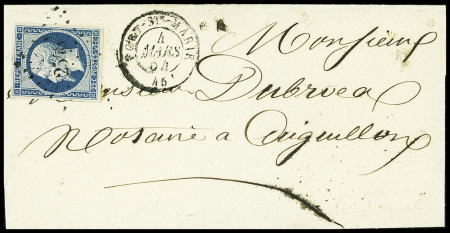 REPUB FRANC
POSTES
PORT-STE-MARIE
4
MARS
54
(45)
Monsieur
Monsieur Dubroca
Notaire à Aiguillon